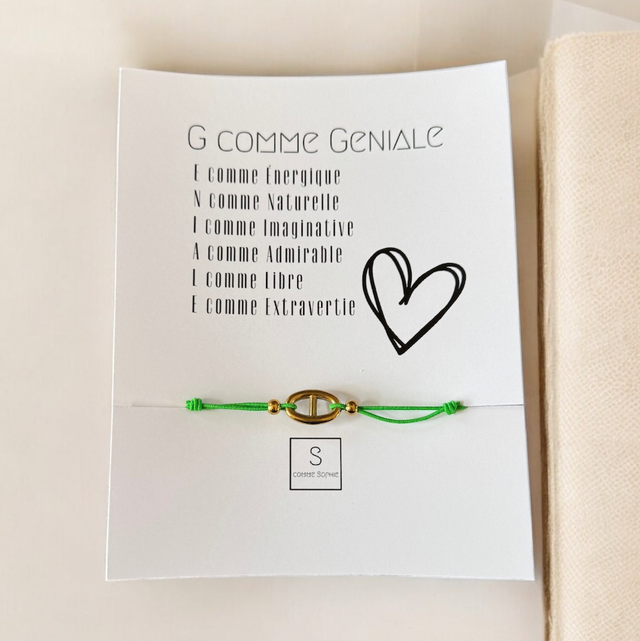 G COMME GENIALE
E comme Énergique
N comme Naturelle
I comme Imaginative
A comme Admirable
L comme Libre
E comme Extravertie
S
COMME SOPHIE